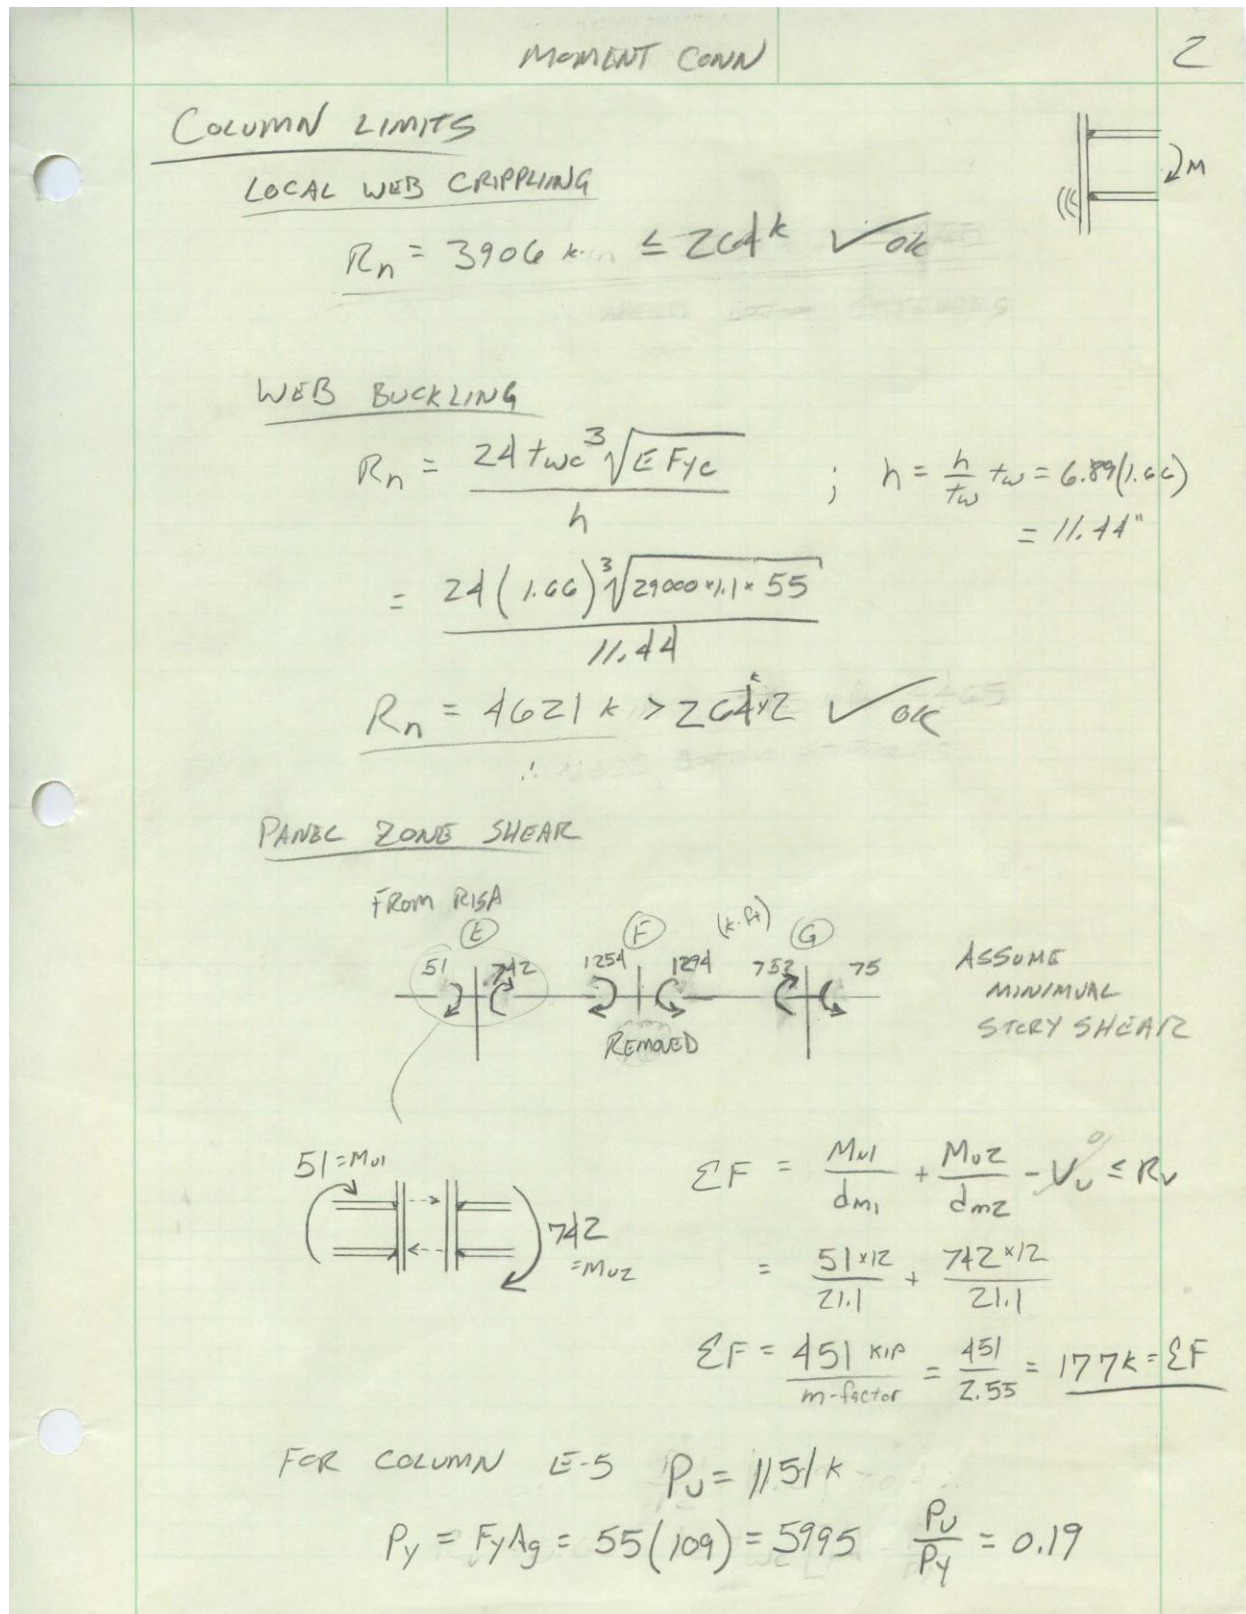 MOMENT CONN 2
COLUMN LIMITS
LOCAL WEB CRIPPLING
M
Rn = 3906 k ≤ 264k ✓ OK
WEB BUCKLING
Rn = 24 twc ³√(E Fyc) / h ; h = h/tw tw = 6.89(1.66)
= 11.44"
= 24(1.66) ³√(29000 × 1.1 × 55) / 11.44
Rn = 4621 k > 264k×2 ✓ OK
PANEL ZONE SHEAR
FROM RISA
E F (k·ft) G
51 742 1254 1294 752 75
ASSUME
MINIMUAL
STORY SHEAR
REMOVED
51 = Mu1
742
= Mu2
ΣF = Mu1/dm1 + Mu2/dm2 - Vu⁰ ≤ Rv
= 51×12/21.1 + 742×12/21.1
ΣF = 451 KIP/m-factor = 451/2.55 = 177k = ΣF
FOR COLUMN E-5 Pu = 1151 k
Py = FyAg = 55(109) = 5995 Pu/Py = 0.19